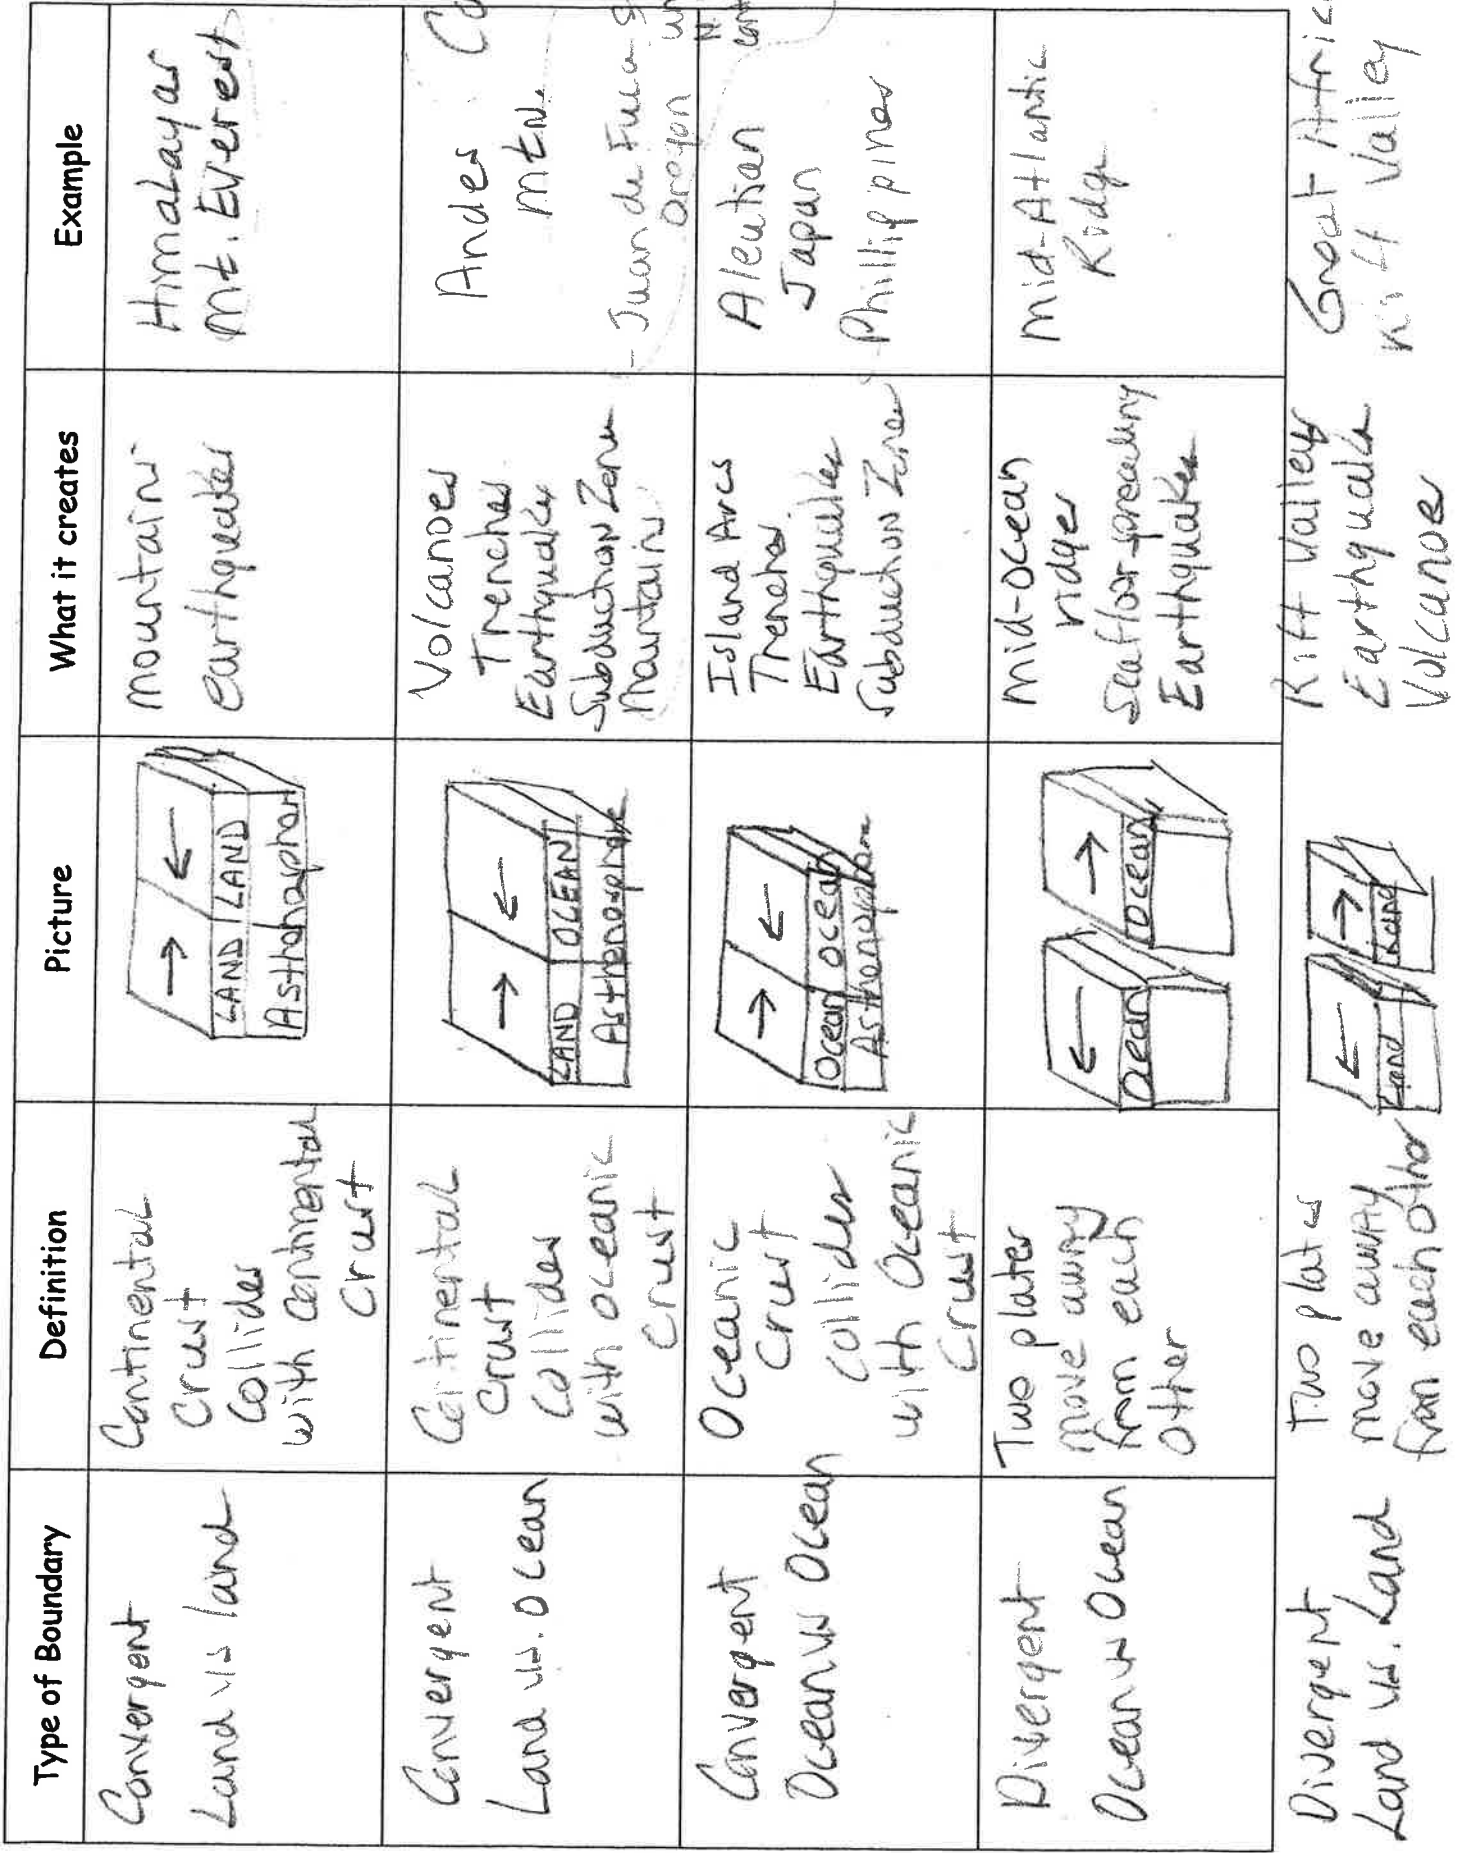 Type of Boundary
Definition
Picture
What it creates
Example
Convergent
Land vs land
Continental
Crust
Collides
with continental
Crust
LAND LAND
Asthenosphere
mountains
earthquakes
Himalayas
Mt. Everest
Convergent
Land vs. Ocean
Continental
Crust
Collides
with oceanic
crust
LAND OCEAN
Asthenosphere
Volcanoes
Trenches
Earthquakes
Subduction Zone
Mountains
Andes
Mtn.
- Juan de Fuca
oregon
Convergent
Ocean vs Ocean
Oceanic
Crust
collides
with Oceanic
Crust
Ocean Ocean
Asthenosphere
Island Arcs
Trenches
Earthquakes
Subduction Zones
Aleutian
Japan
Phillippines
Divergent
Ocean vs Ocean
Two plates
move away
from each
other
Ocean
Ocean
mid-ocean
ridges
Seafloor-spreading
Earthquakes
Mid-Atlantic
Ridge
Divergent
Land vs. Land
Two plates
move away
from each other
Land
Land
Rift Valleys
Earthquakes
Volcanoes
Great
Rift Valley